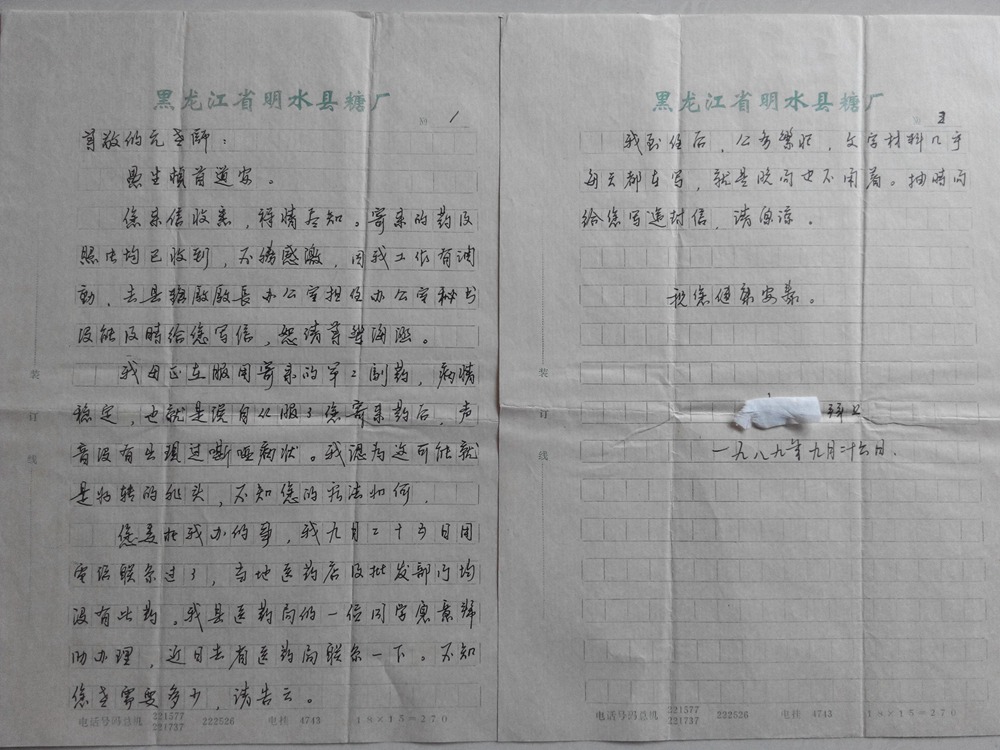 黑龙江省明水县糖厂
№ 1
尊敬的元老师:
愚生顿首道安。
您来信收悉,详情尽知。寄来的药及
照片均已收到,不勝感激,因我工作有调
动,去县糖厰厰長办公室担任办公室秘书
没能及時给您写信,恕請尊駕海涵。
我母正在服用寄来的第2副药,病情
穩定,也就是说自从服了您寄来药后,声
音没有出現过嘶哑病状。我認为这可能就
是好转的兆头,不知您的看法如何.
您委托我办的事,我九月二十五日用
電话联系过了,当地医药店及批发部门均
没有此药。我县医药局的一位同学愿意幫
助办理,近日去省医药局联系一下。不知
您老需要多少,请告云。
电话号码总机 221577 221737 222526 电挂 4743 18×15=270
装
订
线
黑龙江省明水县糖厂
№ 2
我到任后,公务繁忙,文字材料几乎
每天都在写,就是晚间也不闲着。抽時间
给您写这封信,请原凉。
祝您健康安泰。
拜上
一九八九年九月二十六日.
电话号码总机 221577 221737 222526 电挂 4743 18×15=270
装
订
线